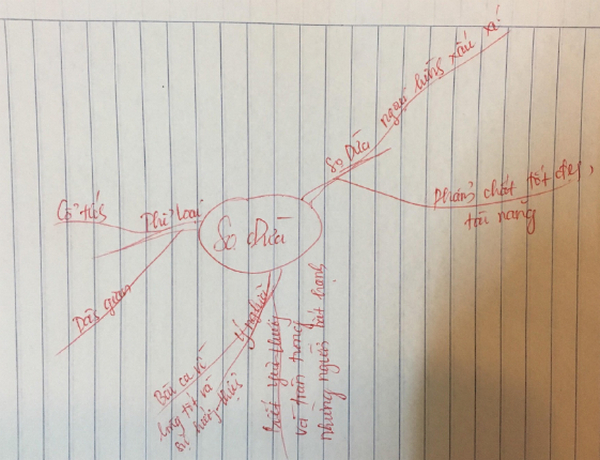 Sọ Dừa
Sọ Dừa
ngoại hình xấu xí
phẩm chất tốt đẹp,
tài năng
Thể loại
Cổ tích
Dân gian
ý nghĩa
Bài ca về
lòng tốt và
sự hướng thiện
biết yêu thương
và trân trọng
những người bất hạnh